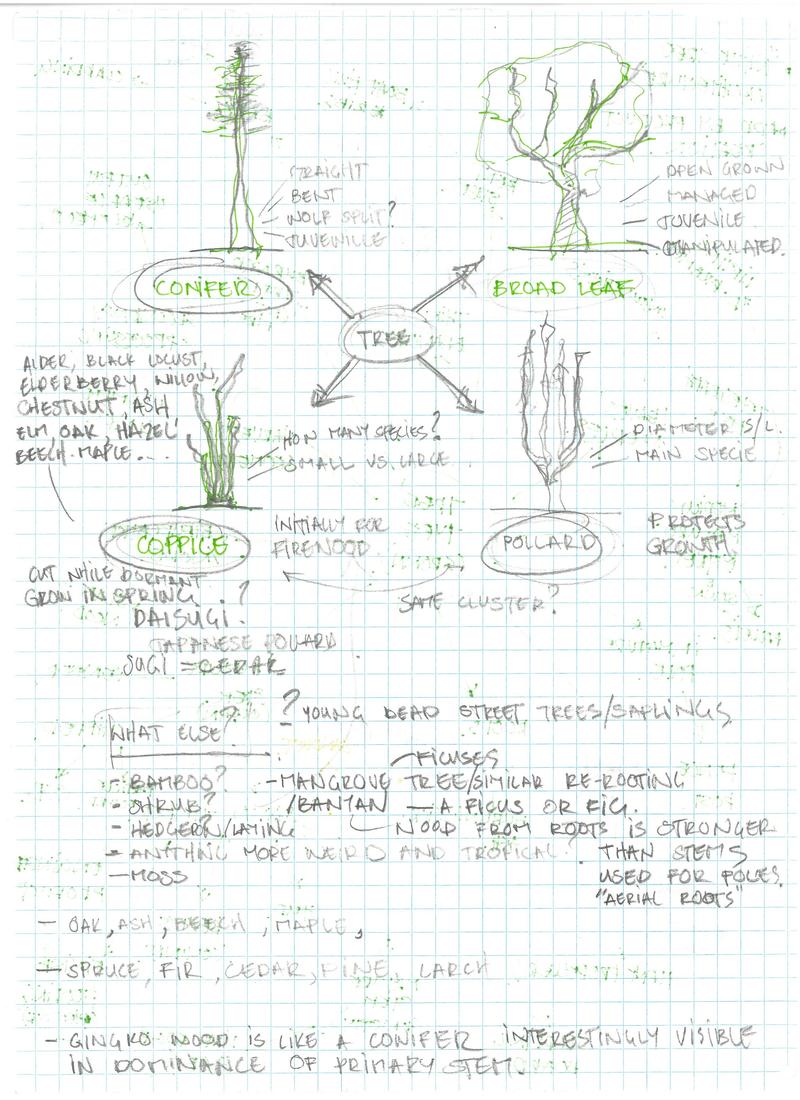 STRAIGHT
BENT
WOLF SPLIT?
JUVEINILLE
CONIFER
OPEN GROWN
MANAGED
JUVENILE
MANIPULATED.
BROAD LEAF
TREE
ALDER, BLACK LOCUST,
ELDERBERRY, WILLOW,
CHESTNUT, ASH
ELM, OAK, HAZEL
BEECH. MAPLE...
HOW MANY SPECIES?
SMALL VS. LARGE
COPPICE
INITIALLY FOR
FIREWOOD
DIAMETER S/L.
MAIN SPECIE
POLLARD
PROTECTS
GROWTH.
SAME CLUSTER?
CUT WHILE DORMANT
GROW IN SPRING. ?
DAISUGI.
JAPANESE POLLARD
SUGI = CEDAR
WHAT ELSE?
? YOUNG DEAD STREET TREES/SAPLINGS
- BAMBOO?
- SHRUB?
- HEDGEROW/LAYING
- ANYTHING MORE WEIRD AND TROPICAL?
- MOSS
FICUSES
- MANGROVE TREE/SIMILAR RE-ROOTING
/BANYAN - A FICUS OR FIG.
WOOD FROM ROOTS IS STRONGER
THAN STEMS
USED FOR POLES.
"AERIAL ROOTS"
- OAK, ASH, BEECH, MAPLE,
- SPRUCE, FIR, CEDAR, PINE, LARCH
- GINGKO WOOD IS LIKE A CONIFER INTERESTINGLY VISIBLE
IN DOMINANCE OF PRIMARY STEM.